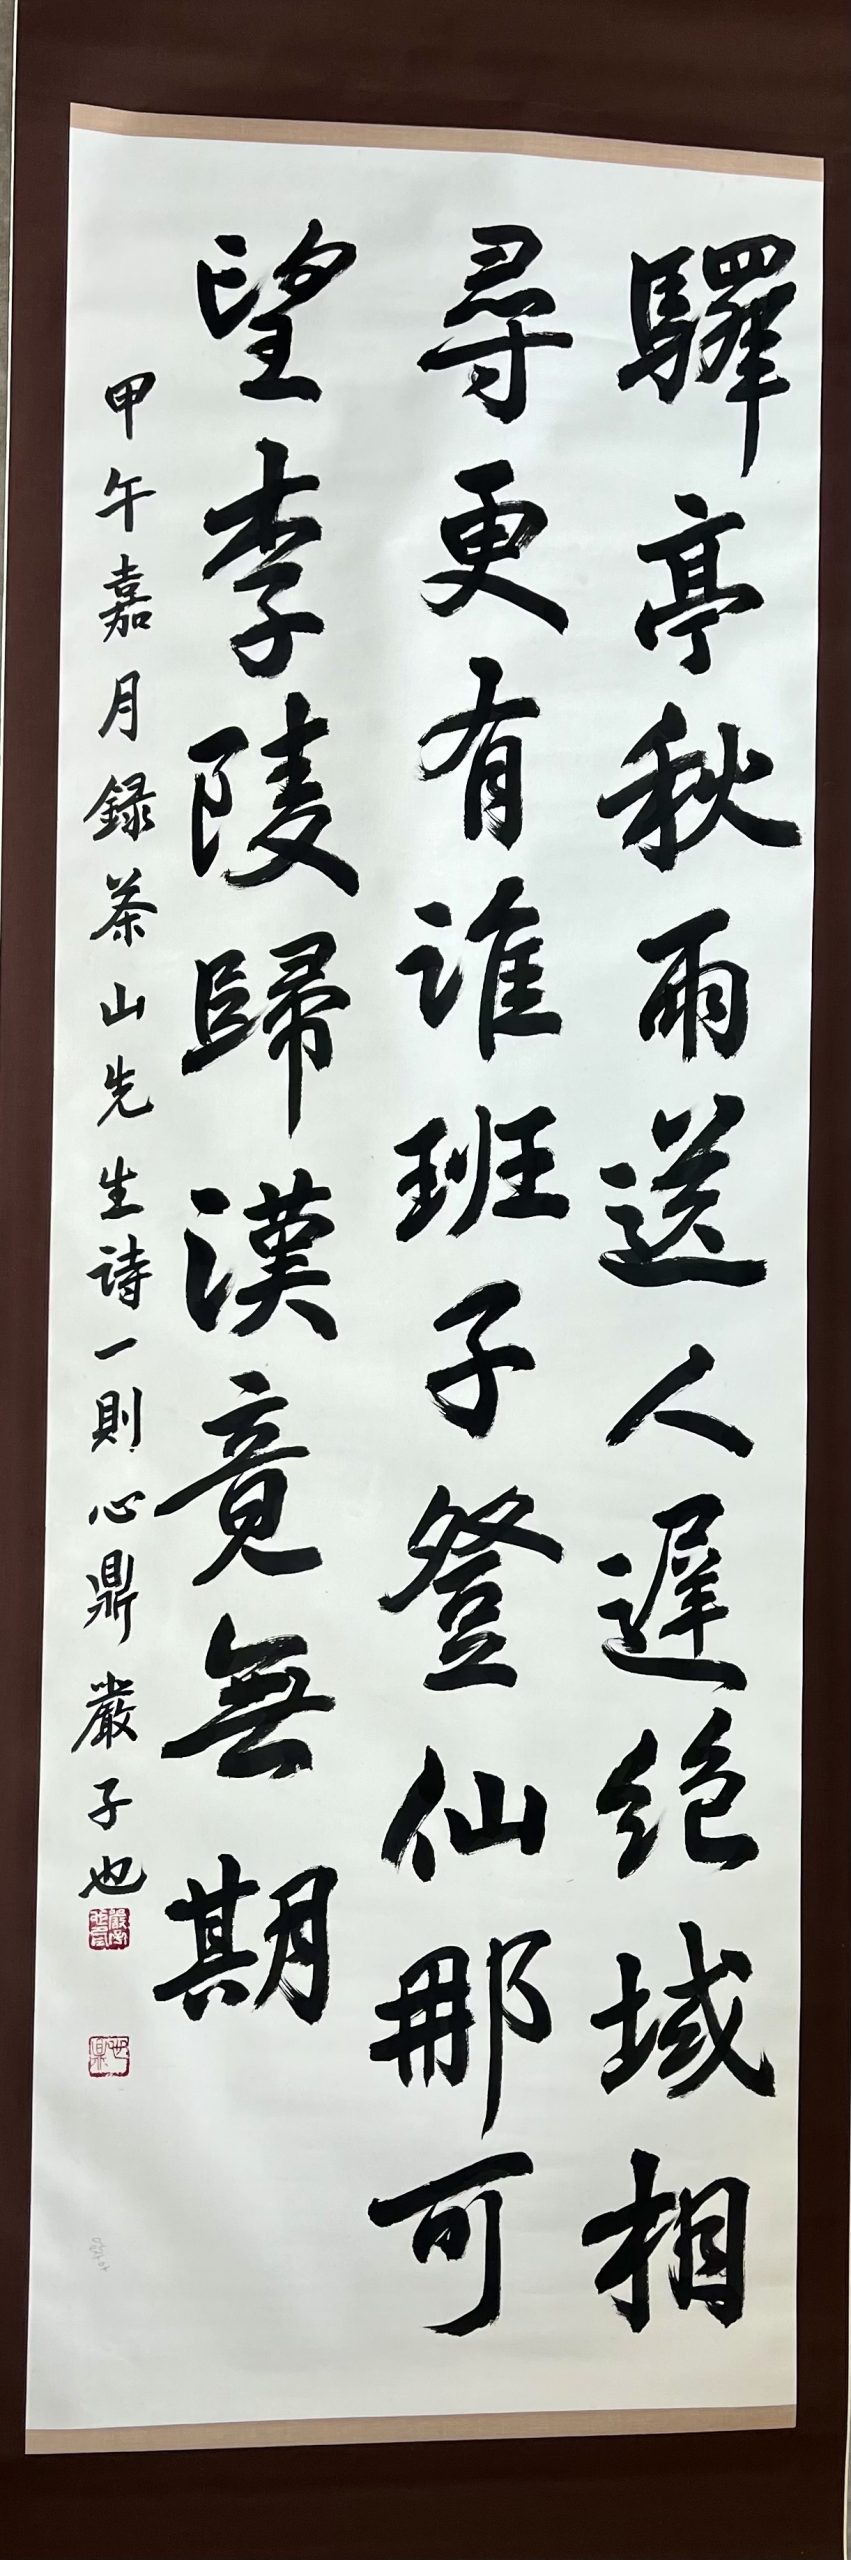 驛亭秋雨送人遲絕域相
尋更有誰班子登仙那可
望李陵歸漢竟無期
甲午嘉月録茶山先生诗一則心鼎嚴子也